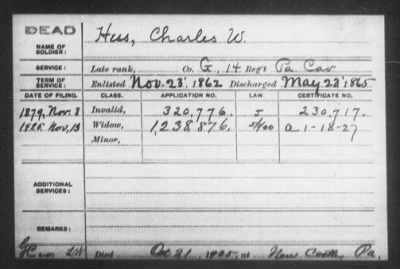 DEAD
NAME OF SOLDIER: Hess, Charles W.
SERVICE: Late rank, Co. G, 14 Reg't Pa. Cav.
TERM OF SERVICE: Enlisted Nov. 23, 1862 Discharged May 23, 1865
DATE OF FILING. CLASS. APPLICATION NO. LAW. CERTIFICATE NO.
1879, Nov. 8 Invalid, 320,776. 230,717.
Nov, 13 Widow, 1,238,876. a 1-18-27
Minor,
ADDITIONAL SERVICES:
REMARKS:
Died Oct 21, 1925, at New Castle, Pa.